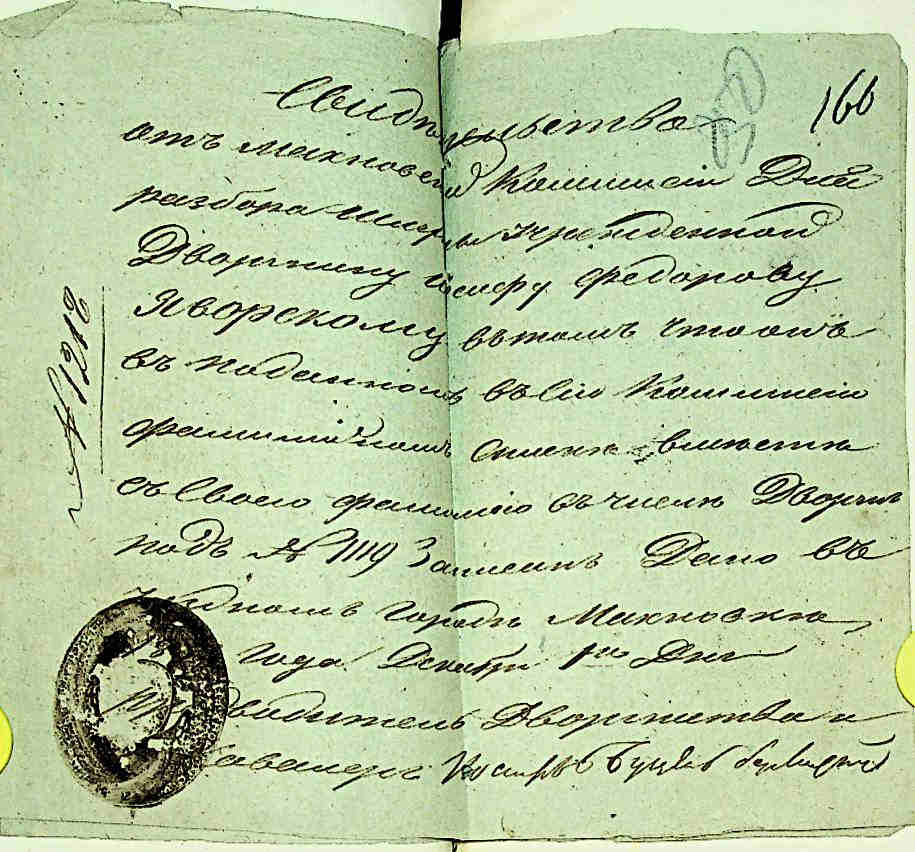 166
Свидѣтельство
отъ Махновской Коммисіи Для
разбора Шляхты Учрежденной
Дворянину Іосифу Федорову
Яворскому въ томъ что онъ
въ поданномъ въ Сію Коммисію
фамилійномъ Спискѣ вмѣстѣ
съ Своею фамиліею въ числѣ Дворянъ
подъ № 1119 Записанъ Дано въ
городѣ Махновкѣ
года Декабря Дня
Дворянства и
Кавалеръ
№ 1218